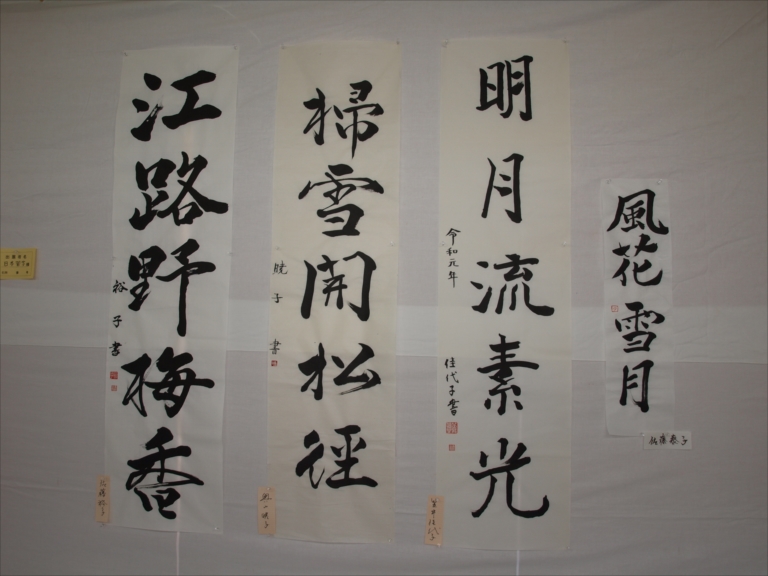 風花雪月
明月流素光
令和元年
佳代子書
掃雪開松径
暁子書
江路野梅香
裕子書